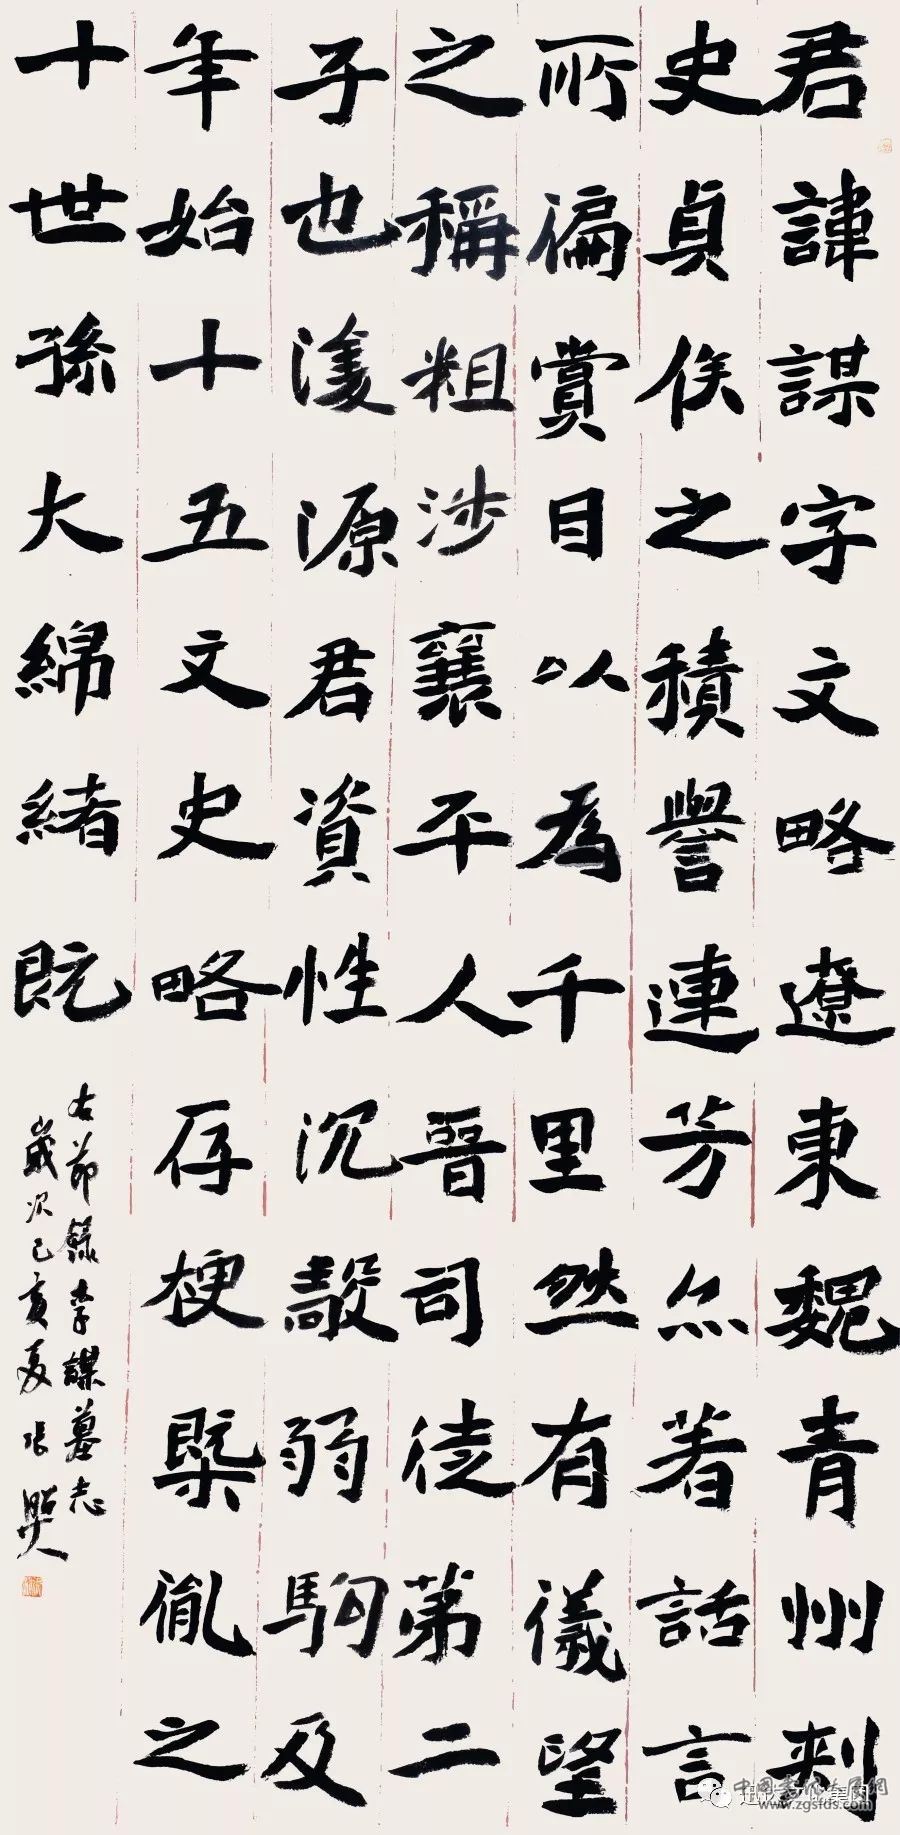 君諱謀字文略遼東魏青州刾
史貞侯之積譽連芳尒著話言
所徧賞目以為千里然有儀望
之稱粗涉襄平人晉司徒苐二
子也濬源君資性沉毅弱駒及
年始十五文史略存梗槩胤之
十世孫大綿緒既
右節錄李謀墓志
歲次己亥夏张
www.zgsfds.com